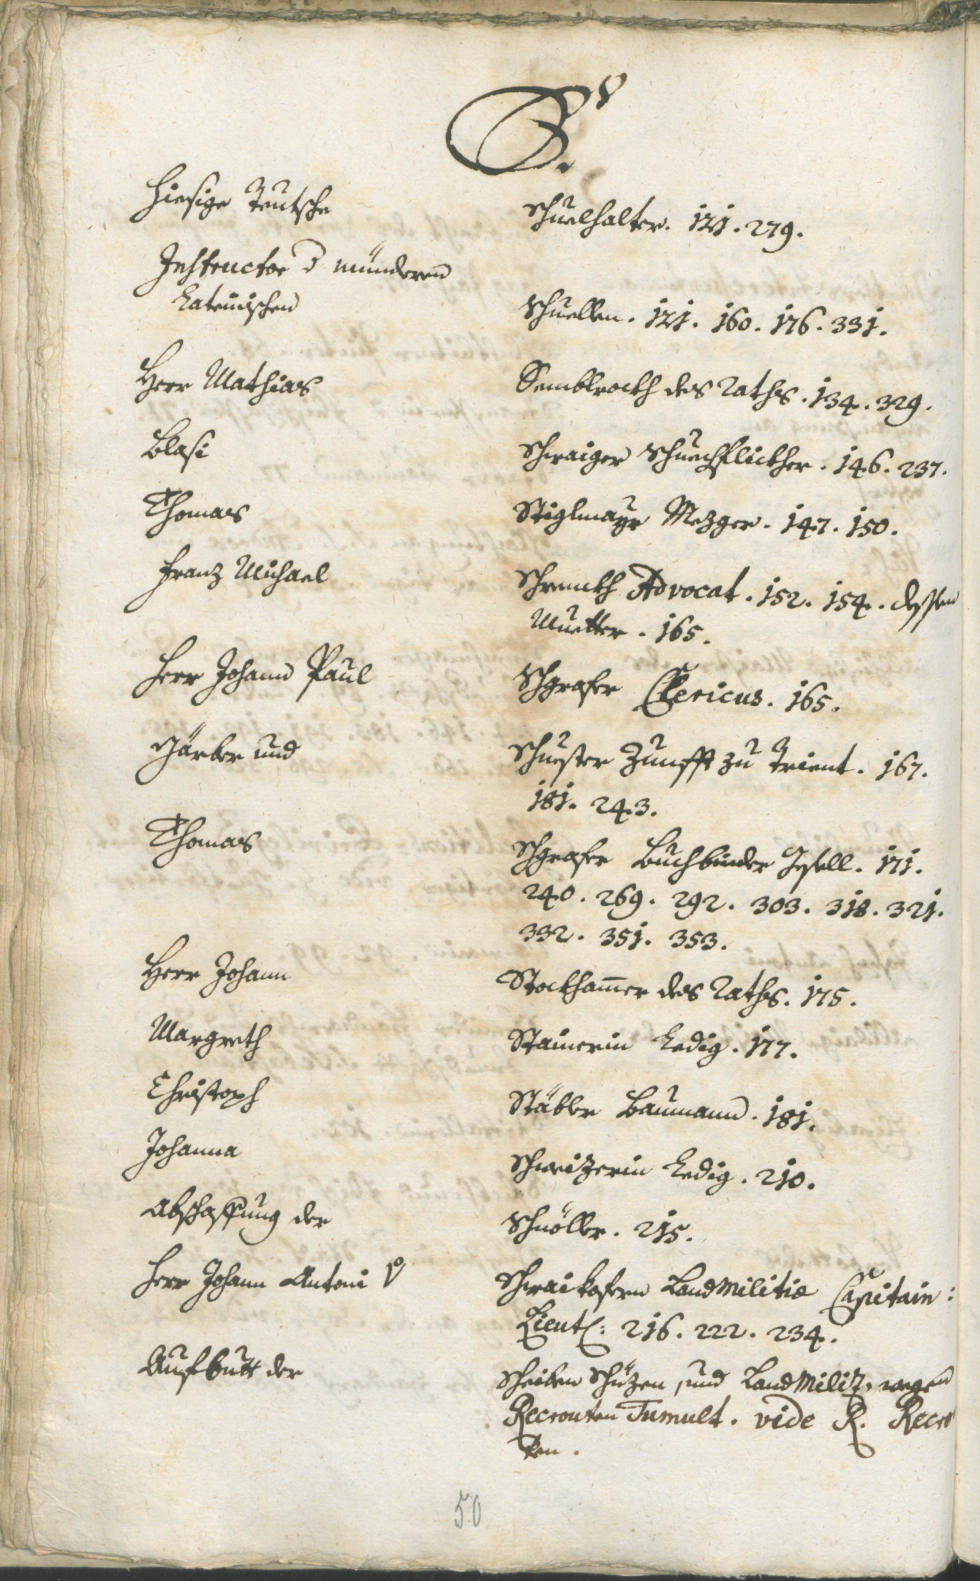 S.
Hiesige Teutsche Schuelhalter. 121. 279.
Instructor d mündern
Lateinischen Schuellen. 121. 160. 176. 331.
Herr Mathias Semblrockh des Raths. 134. 329.
Blasi Schwaiger Schuechflickher. 146. 237.
Thomas Stiglmayr Mezger. 147. 150.
Franz Michael Schrenckh Advocat. 152. 154. dessen
Muetter. 165.
Herr Johann Paul Schgrafer Clericus. 165.
Gärber und Schuester Zunfft zu Trient. 167.
181. 243.
Thomas Schgrafer Buchbinder Gesell. 171.
240. 269. 292. 303. 318. 321.
332. 351. 353.
Herr Johann Stockhamer des Raths. 175.
Margreth Stainerin Ledig. 177.
Christoph Stäbler Baumann. 181.
Johanna Schweizerin Ledig. 210.
Abschaffung der Schnöller. 215.
Herr Johann Antoni v Schraikofern Landmilitiæ Capitain:
Lieut: 216. 222. 234.
Aufbutt der Scheiben Schüzen, und Landmiliz, wegen
Recrouten Tumult. vide R. Recro
ten.
50